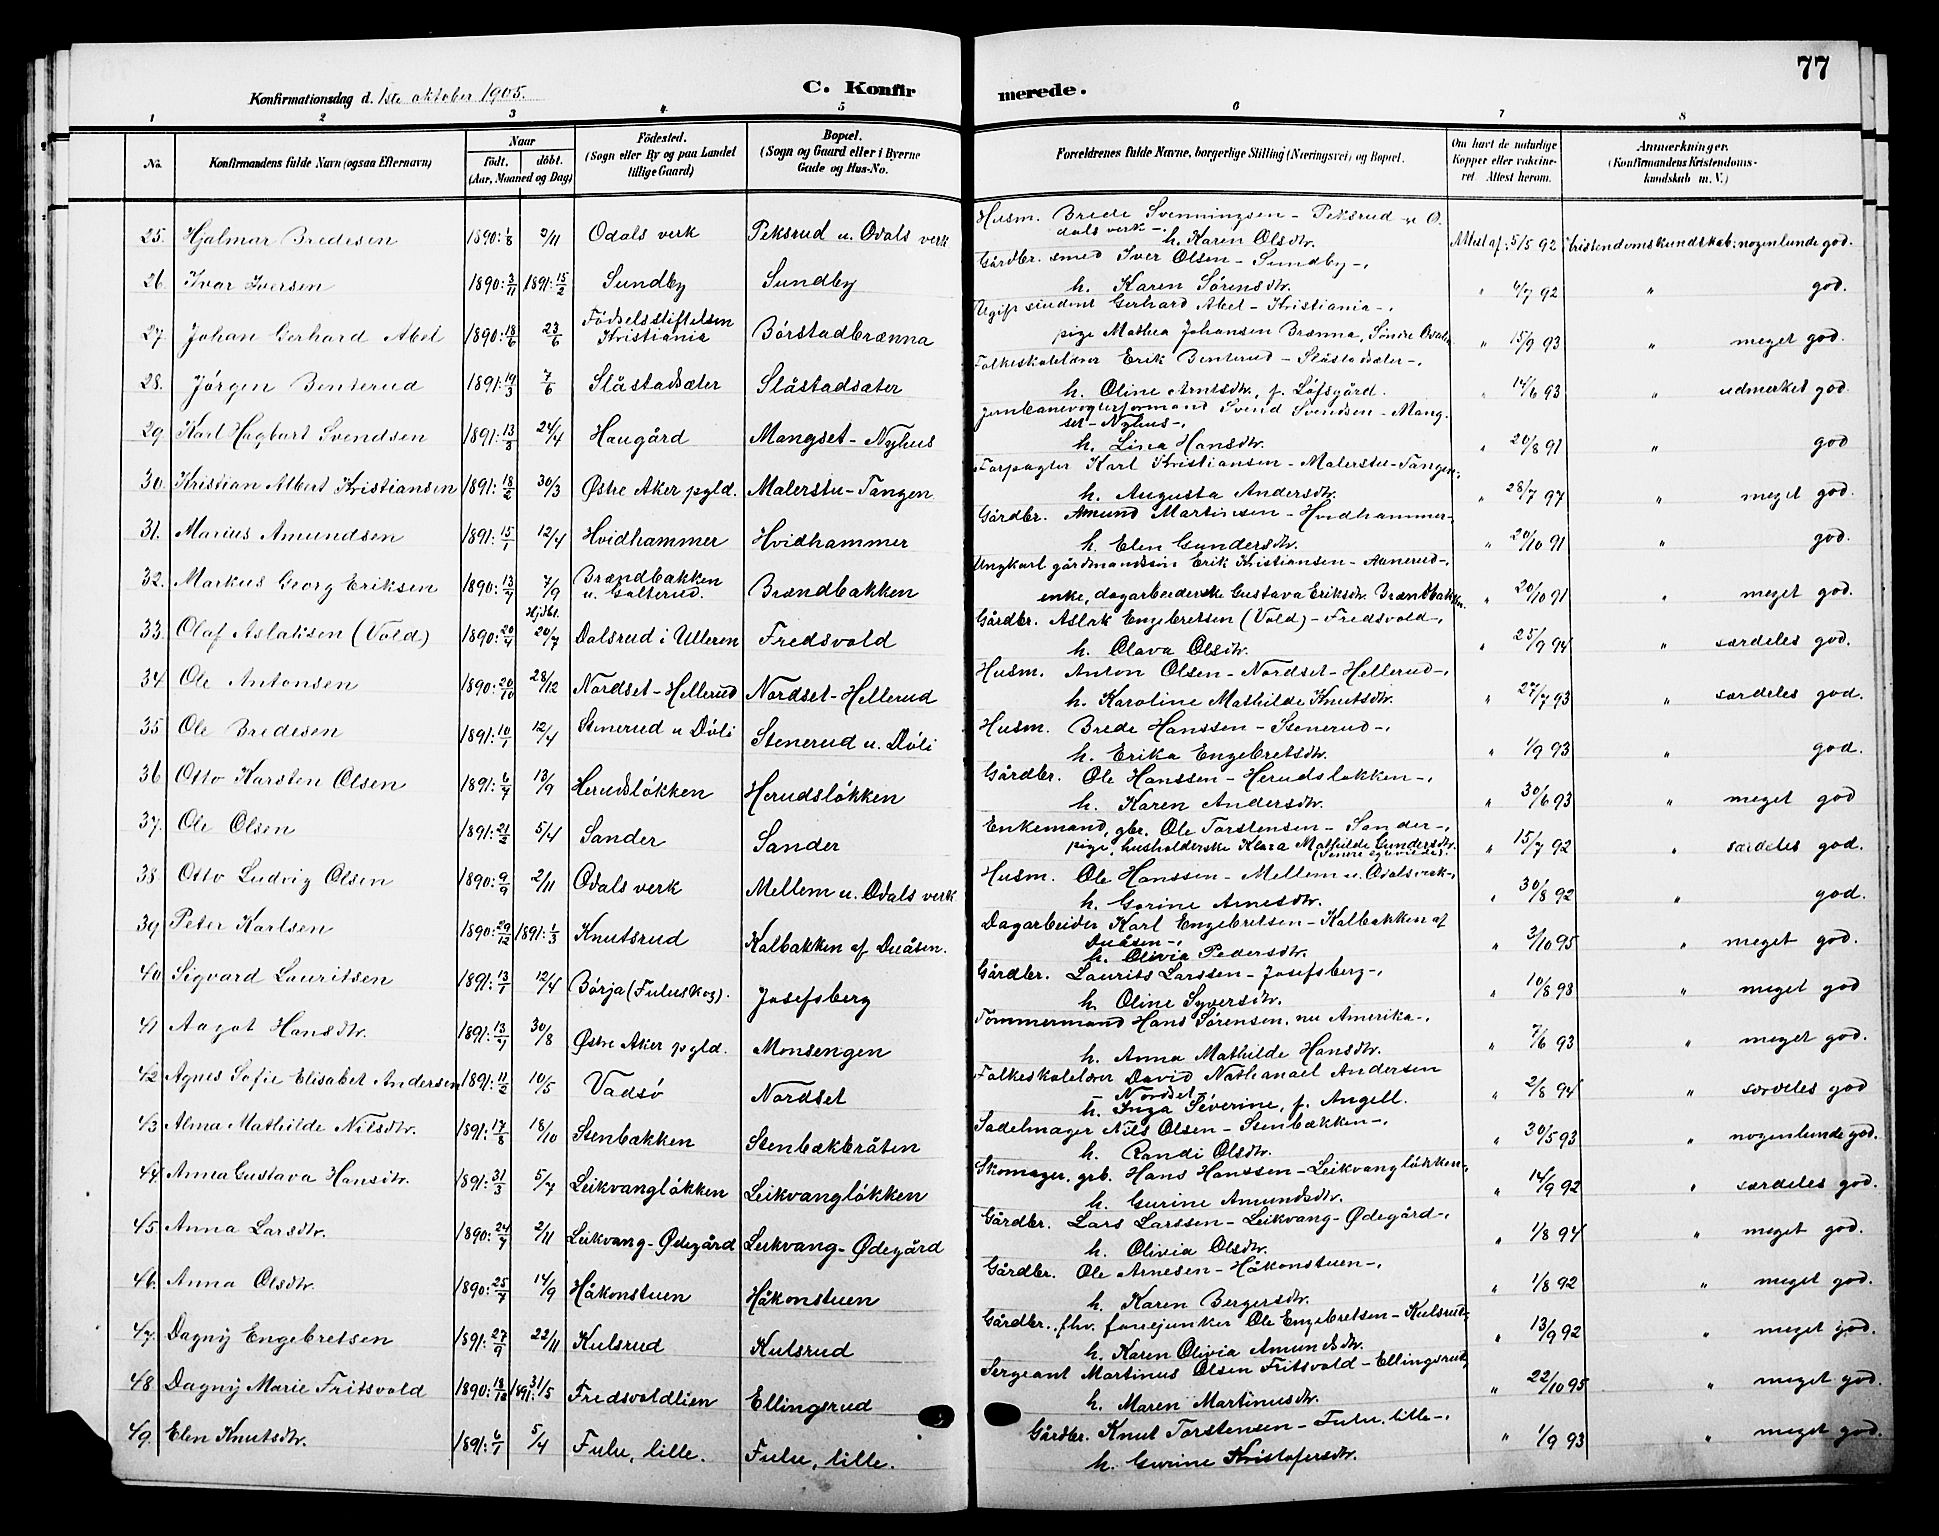 77
Konfirmationsdag d. 1ste oktober 1905.
C. Konfirmerede.
1 2 3 4 5 6 7 8
No. Konfirmandens fulde Navn (ogsaa Efternavn) Naar födt. döbt. (Aar, Maaned og Dag) Födested. (Sogn eller By og paa Landet tillige Gaard) Bopæl. (Sogn og Gaard eller i Byerne Gade og Hus-No. Forældrenes fulde Navne, borgerlige Stilling (Næringsvei) og Bopæl. Om havt de naturlige Kopper eller vakcineret. Attest herom. Anmerkninger. (Konfirmandens Kristendomskundskab m. V.)
25. Hjalmar Bredesen 1890: 1/8 9/11 Odals verk Peksrud u. Odals verk Husm. Brede Svenningsen - Peksrud u. Odals verk -, h. Karen Olsdtr. Attest af: 5/5 92 Kristendomskundskab: nogenlunde god.
26. Ivar Iversen 1890: 3/11 1891: 15/2 Sundby Sundby Gårdbr. smed Iver Olsen - Sundby -, h. Karen Sørensdtr. " 4/7 92 " god.
27. Johan Gerhard Abel 1890: 18/6 23/6 Födselsstiftelsen Kristiania Börstadbrænna Ugift student Gerhard Abel - Kristiania -, pige Mathea Johansen Brænna, Söndre Odalen " 15/9 93 " meget god.
28. Jørgen Benterud 1891: 19/3 7/6 Slåstadsæter Slåstadsæter Folkeskolelærer Erik Benterud - Slåstadsæter -, h. Oline Arntsdtr, f. Löfsgård. " 14/6 93 " udmerket god.
29. Karl Hagbart Svendsen 1891: 13/3 24/4 Haugård Mangset - Nyhus Jernbanevogterformand Svend Svendsen - Mangset - Nyhus -, h. Lina Hansdtr. " 20/8 91 " god
30. Kristian Albert Kristiansen 1891: 18/2 30/3 Østre Aker pgld. Malerstu - Tangen Forpagter Karl Kristiansen - Malerstu - Tangen -, h. Augusta Andersdtr. " 28/7 97 " meget god.
31. Marius Amundsen 1891: 15/1 12/4 Hvidhammer Hvidhammer Gårdbr. Amund Martinsen - Hvidhammer -, h. Elen Gundersdtr. " 20/10 91 " god.
32. Markus Georg Eriksen 1890: 13/7 7/9 Brændbakken u. Galterud. Brændbakken Ungkarl gårdmandssön Erik Kristiansen - Aanerud -, enke, dagarbeiderske Gustava Eriksdtr. Brændbakken. " 20/10 91 " meget god.
33. Olaf Aslaksen (Vold) 1890: 20/4 Hjdbt. 20/7 Dalsrud i Ulleren Fredsvold Gårdbr. Aslak Engebretsen (Vold) - Fredsvold -, h. Olava Olsdtr. " 25/9 94 " særdeles god.
34. Ole Antonsen 1890: 20/10 28/12 Nordset - Hellerud Nordset - Hellerud Husm. Anton Olsen - Nordset - Hellerud -, h. Karoline Mathilde Knutsdtr. " 27/7 93 " særdeles god.
35. Ole Bredesen 1891: 10/1 12/4 Stenerud u Döli Stenerud u. Döli Husm. Brede Hanssen - Stenerud -, h. Erika Engebretsdtr. " 1/9 93 " god.
36. Otto Karsten Olsen 1891: 6/7 13/9 Herudslökken Herudslökken Gårdbr. Ole Hanssen - Herudslökken -, h. Karen Andersdtr. " 30/6 93 " meget god
37. Ole Olsen 1891: 21/2 5/4 Sander Sander Enkemand, gbr. Ole Torstensen - Sander -, pige, husholderske Klara Mathilde Gundersdtr. " 15/7 92 " særdeles god.
38. Otto Ludvig Olsen 1890: 9/9 2/11 Odals verk Mellem u. Odals verk Husm. Ole Hanssen - Mellem u. Odals verk -, h. Gorine Arnesdtr. " 30/8 92 " god.
39. Peter Karlsen 1890: 29/12 1891: 1/3 Knutsrud Kalbakken af Duåsen. Dagarbeider Karl Engebretsen - Kalbakken af Duåsen -, h. Olivia Pedersdtr. " 3/10 95 " meget god.
40. Sigvard Lauritsen 1891: 13/1 12/4 Börja (Fuluskog). Josefsberg Gårdbr. Laurits Larssen - Josefsberg -, h. Oline Syversdtr. " 10/8 93 " meget god
41. Aagot Hansdtr. 1891: 13/7 30/8 Østre Aker pgld. Monsengen Tömmermand Hans Sørensen, nu Amerika -, h. Anna Mathilde Hansdtr. " 7/6 93 " meget god.
42. Agnes Sofie Elisabet Andersen 1891: 11/2 10/5 Vadsø Nordset Folkeskolelærer David Nathanael Andersen - Nordset -, h. Inga Séverine, f. Angell. " 2/8 94 " særdeles god
43. Alma Mathilde Nilsdtr. 1891: 17/8 18/10 Stenbækken Stenbækbråten Sadelmager Nils Olsen - Stenbækken -, h. Randi Olsdtr. " 30/5 93 " nogenlunde god.
44. Anna Gustava Hansdtr. 1891: 31/3 5/7 Leikvanglökken Leikvanglökken Skomager, grb. Hans Hanssen - Leikvanglökken -, h. Gurine Amundsdtr. " 14/9 92 " særdeles god.
45. Anna Larsdtr. 1890: 24/7 2/11 Leikvang - Ødegård Leikvang - Ødegård Gårdbr. Lars Larssen - Leikvang - Ødegård -, h. Olivia Olsdtr. " 1/8 94 " meget god.
46. Anna Olsdtr. 1890: 25/7 14/9 Håkonstuen Håkonstuen Gårdbr. Ole Arnesen - Håkonstuen -, h. Karen Bergersdtr. " 1/8 92 " meget god.
47. Dagny Engebretsen 1891: 27/9 22/11 Kulsrud Kulsrud Gårdbr., fhv. fanejunker Ole Engebretsen - Kulsrud -, h. Karen Olivia Amundsdtr. " 13/9 92 " meget god.
48. Dagny Marie Fritsvold 1890: 18/12 1891: 31/5 Fredsvoldlien Ellingsrud Sergeant Martinus Olsen Fritsvold - Ellingsrud, h. Maren Martinusdtr. " 22/10 95 " meget god.
49. Elen Knutsdtr. 1891: 6/1 5/4 Fulu, lille. Fulu, lille. Gårdbr. Knut Torstensen - Fulu, lille -, h. Gurine Kristofersdtr. " 1/9 93 " meget god.